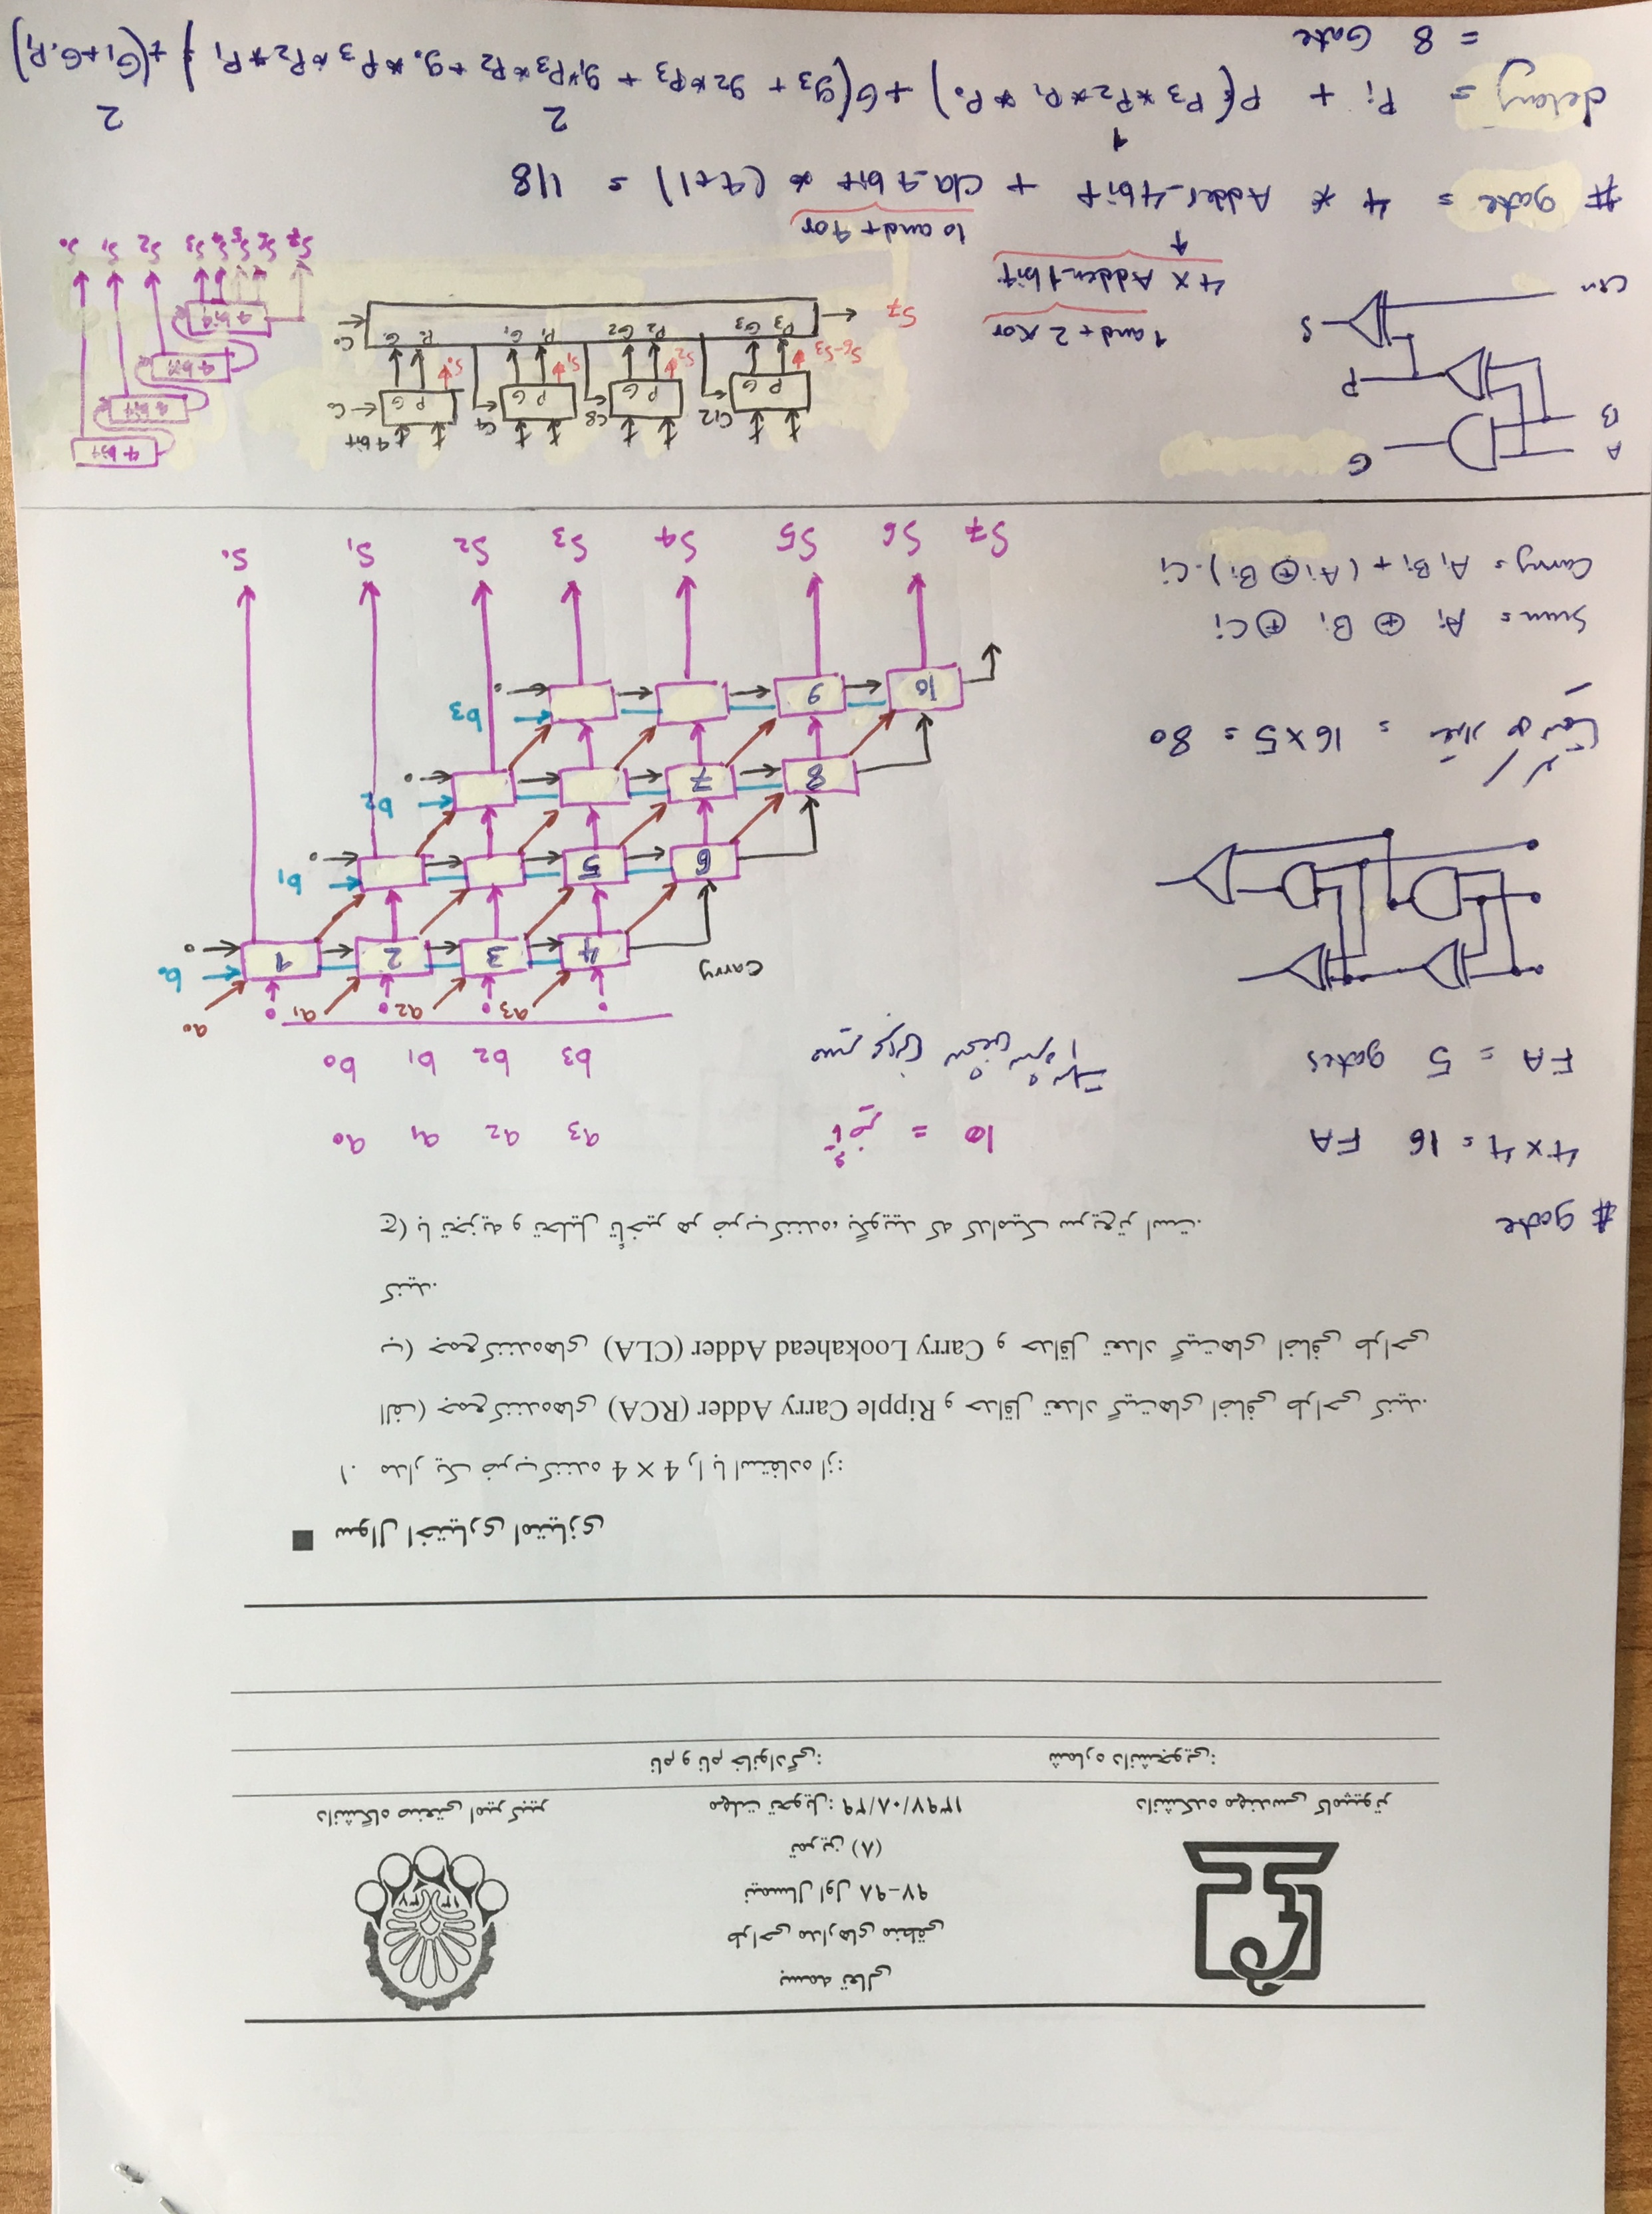 بسمه تعالی
طراحی مدارهای منطقی
نیمسال اول ۹۸-۹۷
تمرین (۸)
مهلت تحویل: ۱۳۹۷/۰۸/۲۹
۱۳ ۳۷
دانشگاه صنعتی امیرکبیر
دانشکده مهندسی کامپیوتر
نام و نام خانوادگی: شماره دانشجویی:
سوال اختیاری امتیازی
۱. مدار یک ضرب‌کننده 4 × 4 را با استفاده از:
الف) جمع‌کننده‌های Ripple Carry Adder (RCA) و حداقل تعداد گیت‌های اضافی طراحی کنید.
ب) جمع‌کننده‌های Carry Lookahead Adder (CLA) و حداقل تعداد گیت‌های اضافی طراحی
کنید.
ج) با تجزیه و تحلیل تأخیر هر ضرب‌کننده، بگویید که کدامیک سریع‌تر است.
# gate
4×4 = 16 FA
FA = 5 gates
تعداد کل گیتها = 16×5 = 80
Sum = Ai ⊕ Bi ⊕ Ci
Carry = AiBi + (Ai ⊕ Bi).Ci
تأخیر = 10
مسیر بحرانی مشخص شده است
a3 a2 a1 a0
b3 b2 b1 b0
a3 a2 a1 a0
Carry 4 3 2 1 b0
6 5 b1
8 7 b2
10 9 b3
S7 S6 S5 S4 S3 S2 S1 S0
A G
B
P
S
Cin
C12 C8 C4 4 bit
P G P G P G P G C0
S6-S3 S2 S1 S0
P3 G3 P2 G2 P1 G1 P0 G0 C0
S7
4 bit
4 bit
4 bit
4 bit
S7 S6 S5 S4 S3 S2 S1 S0
1 and + 2 xor
4 × Adder_1bit
10 and + 4 or
# gate = 4 * Adder_4bit + cla_4bit * (4+1) = 118
1 2 2
delay = Pi + P(P3*P2*P1*P0) + G(g3 + g2*P3 + g1*P3*P2 + g0*P3*P2*P1) + (G1+G0.P1)
= 8 Gate